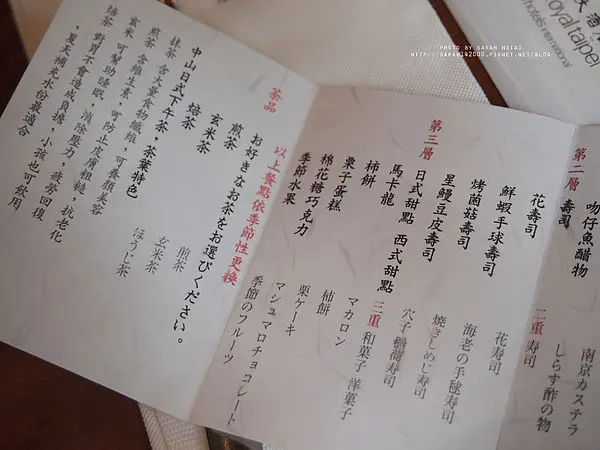 PHOTO BY SARAH HSIAO
HTTP://SARAH142000.PIXNET.NET/BLOG
royal taipei
hotels international
第二層
吻仔魚醋物
壽司
花壽司
鮮蝦手球壽司
烤菌菇壽司
星鰻豆皮壽司
第三層
日式甜點 西式甜點
馬卡龍
柿餅
栗子蛋糕
棉花糖巧克力
季節水果
以上餐點依季節性更換
南京カステラ
しらす酢の物
二重 寿司
花寿司
海老の手毬寿司
焼きしめじ寿司
穴子稲荷寿司
三重 和菓子 洋菓子
マカロン
柿餅
栗ケーキ
マシュマロチョコレート
季節のフルーツ
茶品
お好きなお茶をお選びください。
煎茶 煎茶
玄米茶 玄米茶
焙茶 ほうじ茶
中山日式下午茶，茶葉特色
抹茶 含大量食物纖維，可養顏美容
煎茶 含維生素，可防止皮膚粗糙，抗老化
玄米 可幫助睡眠，消除壓力，疲勞回復
焙茶 對胃不會造成負擔，小孩也可飲用
，夏天補充水份最適合